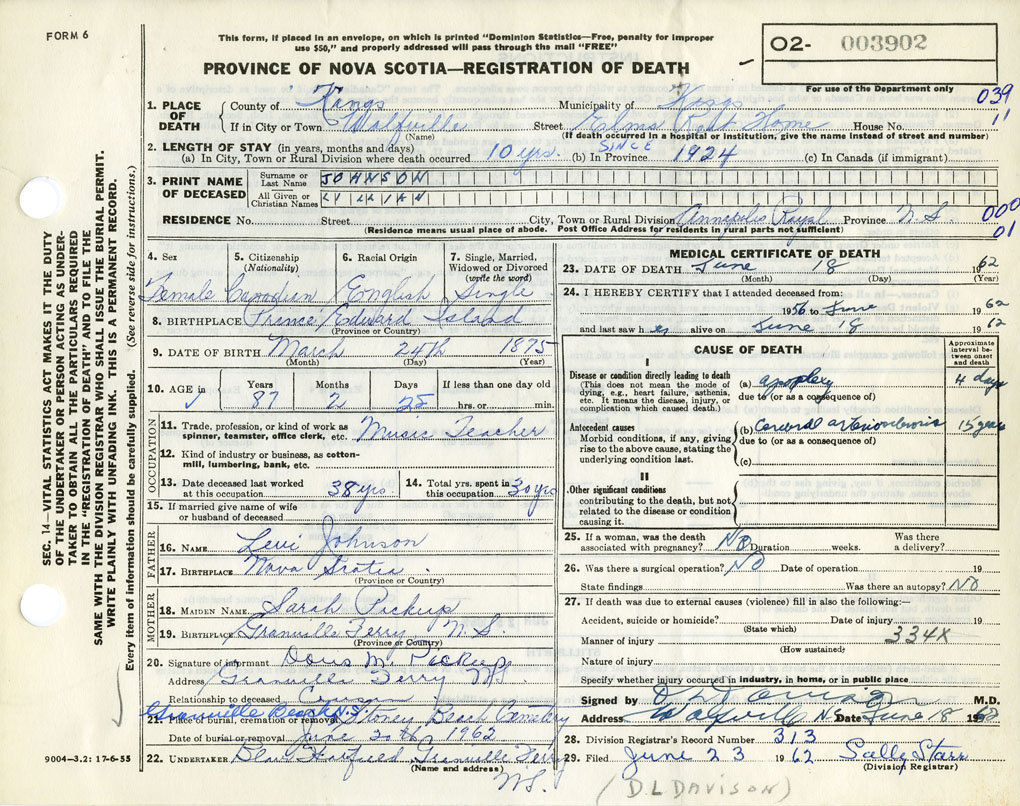 FORM 6
This form, if placed in an envelope, on which is printed "Dominion Statistics—Free, penalty for improper
use $50," and properly addressed will pass through the mail "FREE"
PROVINCE OF NOVA SCOTIA—REGISTRATION OF DEATH
O2- 003902
For use of the Department only
039
11
1. PLACE OF DEATH
County of Kings Municipality of Kings
If in City or Town Wolfville Street Elms Rest Home House No.
(Name) (If death occurred in a hospital or institution, give the name instead of street and number)
2. LENGTH OF STAY (in years, months and days)
(a) In City, Town or Rural Division where death occurred 10 yrs. (b) In Province SINCE 1924 (c) In Canada (if immigrant)
3. PRINT NAME OF DECEASED
Surname or Last Name JOHNSON
All Given or Christian Names LILLIAN
RESIDENCE No. Street City, Town or Rural Division Annapolis Royal Province N.S.
(Residence means usual place of abode. Post Office Address for residents in rural parts not sufficient)
000
01
4. Sex 5. Citizenship (Nationality) 6. Racial Origin 7. Single, Married, Widowed or Divorced (write the word)
Female Canadian English Single
8. BIRTHPLACE Prince Edward Island
(Province or Country)
9. DATE OF BIRTH March 24th 1875
(Month) (Day) (Year)
10. AGE in Years Months Days If less than one day old
87 2 25 hrs. or min.
OCCUPATION
11. Trade, profession, or kind of work as spinner, teamster, office clerk, etc. Music Teacher
12. Kind of industry or business, as cotton-mill, lumbering, bank, etc.
13. Date deceased last worked at this occupation 38 yrs. 14. Total yrs. spent in this occupation 30 yrs
15. If married give name of wife or husband of deceased
FATHER
16. NAME Levi Johnson
17. BIRTHPLACE Nova Scotia
(Province or Country)
MOTHER
18. MAIDEN NAME Sarah Pickup
19. BIRTHPLACE Granville Ferry N.S.
(Province or Country)
20. Signature of informant Doris M. Pickup
Address Granville Ferry NS.
Relationship to deceased Cousin
Granville Beach N.S.
21. burial, cremation or removal Stoney Beach Cemetery
Date of burial or removal June 20th 1962
22. UNDERTAKER Blair Granville Ferry
(Name and address) NS.
MEDICAL CERTIFICATE OF DEATH
23. DATE OF DEATH June 18 1962
(Month) (Day) (Year)
24. I HEREBY CERTIFY that I attended deceased from:
1956 to June 1962
and last saw her alive on June 18 1962
CAUSE OF DEATH
Approximate interval between onset and death
I
Disease or condition directly leading to death
(This does not mean the mode of dying, e.g., heart failure, asthenia, etc. It means the disease, injury, or complication which caused death.)
(a) apoplexy 4 days
due to (or as a consequence of)
Antecedent causes
Morbid conditions, if any, giving rise to the above cause, stating the underlying condition last.
(b) Cerebral arteriosclerosis 15 years
due to (or as a consequence of)
(c)
II
Other significant conditions
contributing to the death, but not related to the disease or condition causing it.
25. If a woman, was the death associated with pregnancy? NO Duration weeks. Was there a delivery?
26. Was there a surgical operation? NO Date of operation 19
State findings Was there an autopsy? NO
27. If death was due to external causes (violence) fill in also the following:—
Accident, suicide or homicide? Date of injury 19
(State which) 334X
Manner of injury
(How sustained)
Nature of injury
Specify whether injury occurred in industry, in home, or in public place
Signed by M.D.
Address Wolfville NS Date June 18 1962
28. Division Registrar's Record Number 313
29. Filed June 23 1962 Sally Starr
(Division Registrar)
(D L DAVISON)
9004—3.2: 17-6-55
SEC. 14—VITAL STATISTICS ACT MAKES IT THE DUTY
OF THE UNDERTAKER OR PERSON ACTING AS UNDER-
TAKER TO OBTAIN ALL THE PARTICULARS REQUIRED
IN THE "REGISTRATION OF DEATH" AND TO FILE THE
SAME WITH THE DIVISION REGISTRAR WHO SHALL ISSUE THE BURIAL PERMIT.
WRITE PLAINLY WITH UNFADING INK. THIS IS A PERMANENT RECORD.
Every item of information should be carefully supplied. (See reverse side for instructions.)